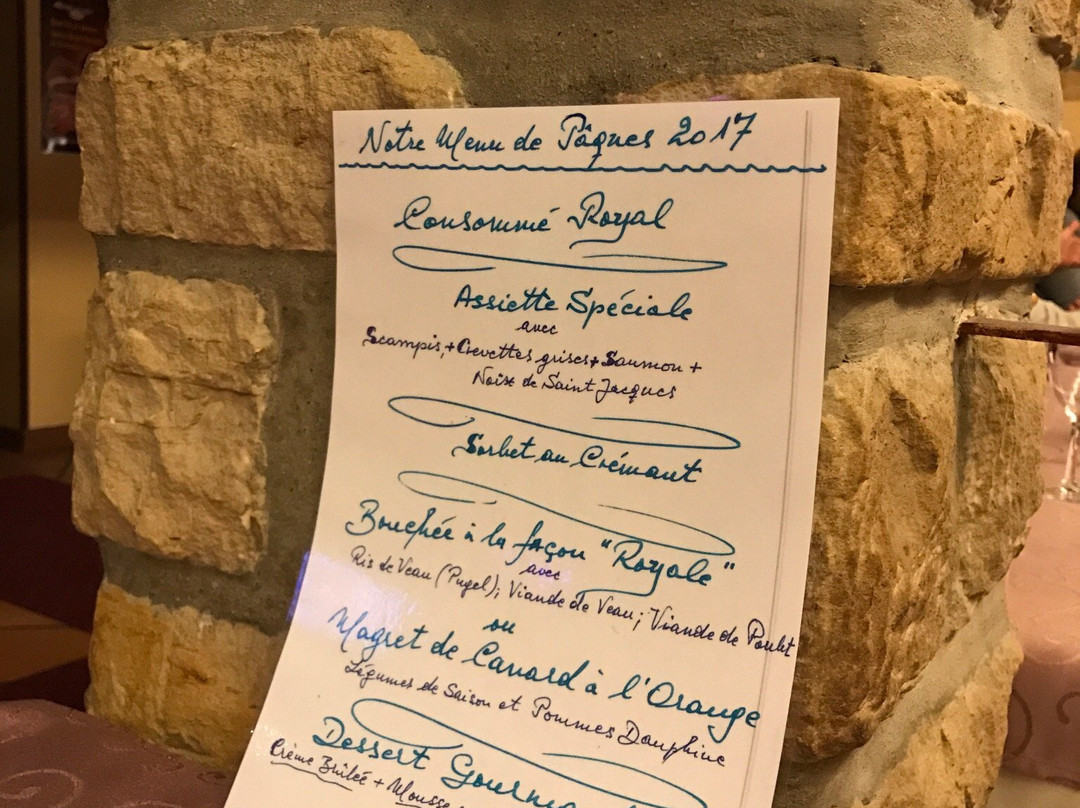 Notre Menu de Pâques 2017
Consommé Royal
Assiette Spéciale
avec
Scampis, + Crevettes grises + Saumon +
Noix de Saint Jacques
Sorbet au Crémant
Bouchée à la façon "Royale"
avec
Ris de Veau (Pugel); Viande de Veau; Viande de Poulet
ou
Magret de Canard à l'Orange
Légumes de Saison et Pommes Dauphine
Dessert
Crème Brûlée + Mousse